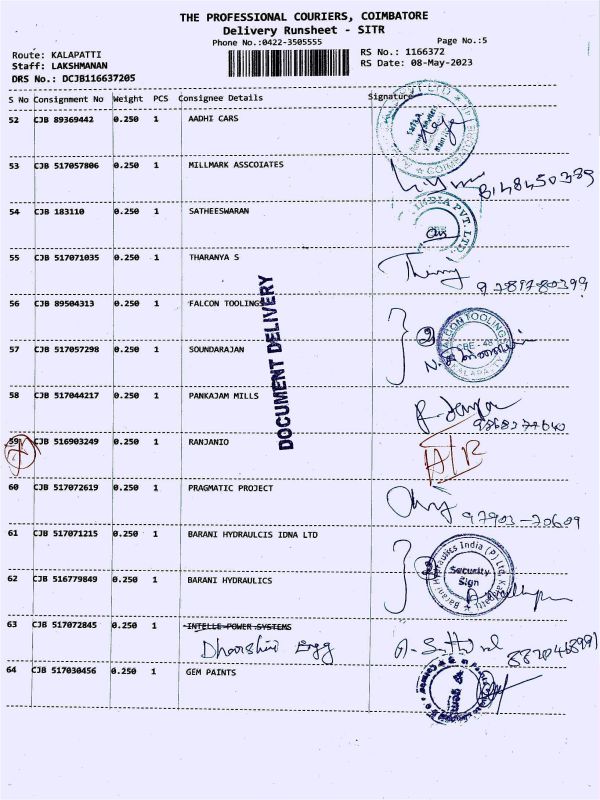 THE PROFESSIONAL COURIERS, COIMBATORE
Delivery Runsheet - SITR
Phone No.:0422-3505555
Page No.:5
Route: KALAPATTI
RS No.: 1166372
Staff: LAKSHMANAN
RS Date: 08-May-2023
DRS No.: DCJB116637205
S No Consignment No Weight PCS Consignee Details Signature
52 CJB 89369442 0.250 1 AADHI CARS
53 CJB 517057806 0.250 1 MILLMARK ASSCOIATES
54 CJB 183110 0.250 1 SATHEESWARAN
INDIA PVT. LTD.
55 CJB 517071035 0.250 1 THARANYA S
9789780399
56 CJB 89504313 0.250 1 FALCON TOOLINGS
2
FALCON TOOLINGS
CBE - 48
KALAPATTY
57 CJB 517057298 0.250 1 SOUNDARAJAN
DOCUMENT DELIVERY
58 CJB 517044217 0.250 1 PANKAJAM MILLS
59 CJB 516903249 0.250 1 RANJANIO
60 CJB 517072619 0.250 1 PRAGMATIC PROJECT
97903-70609
61 CJB 517071215 0.250 1 BARANI HYDRAULCIS IDNA LTD
Barani Hydraulics India (P) Ltd, Kalapatti
Security
Sign
62 CJB 516779849 0.250 1 BARANI HYDRAULICS
63 CJB 517072845 0.250 1 INTELLE POWER SYSTEMS
8870468991
64 CJB 517030456 0.250 1 GEM PAINTS